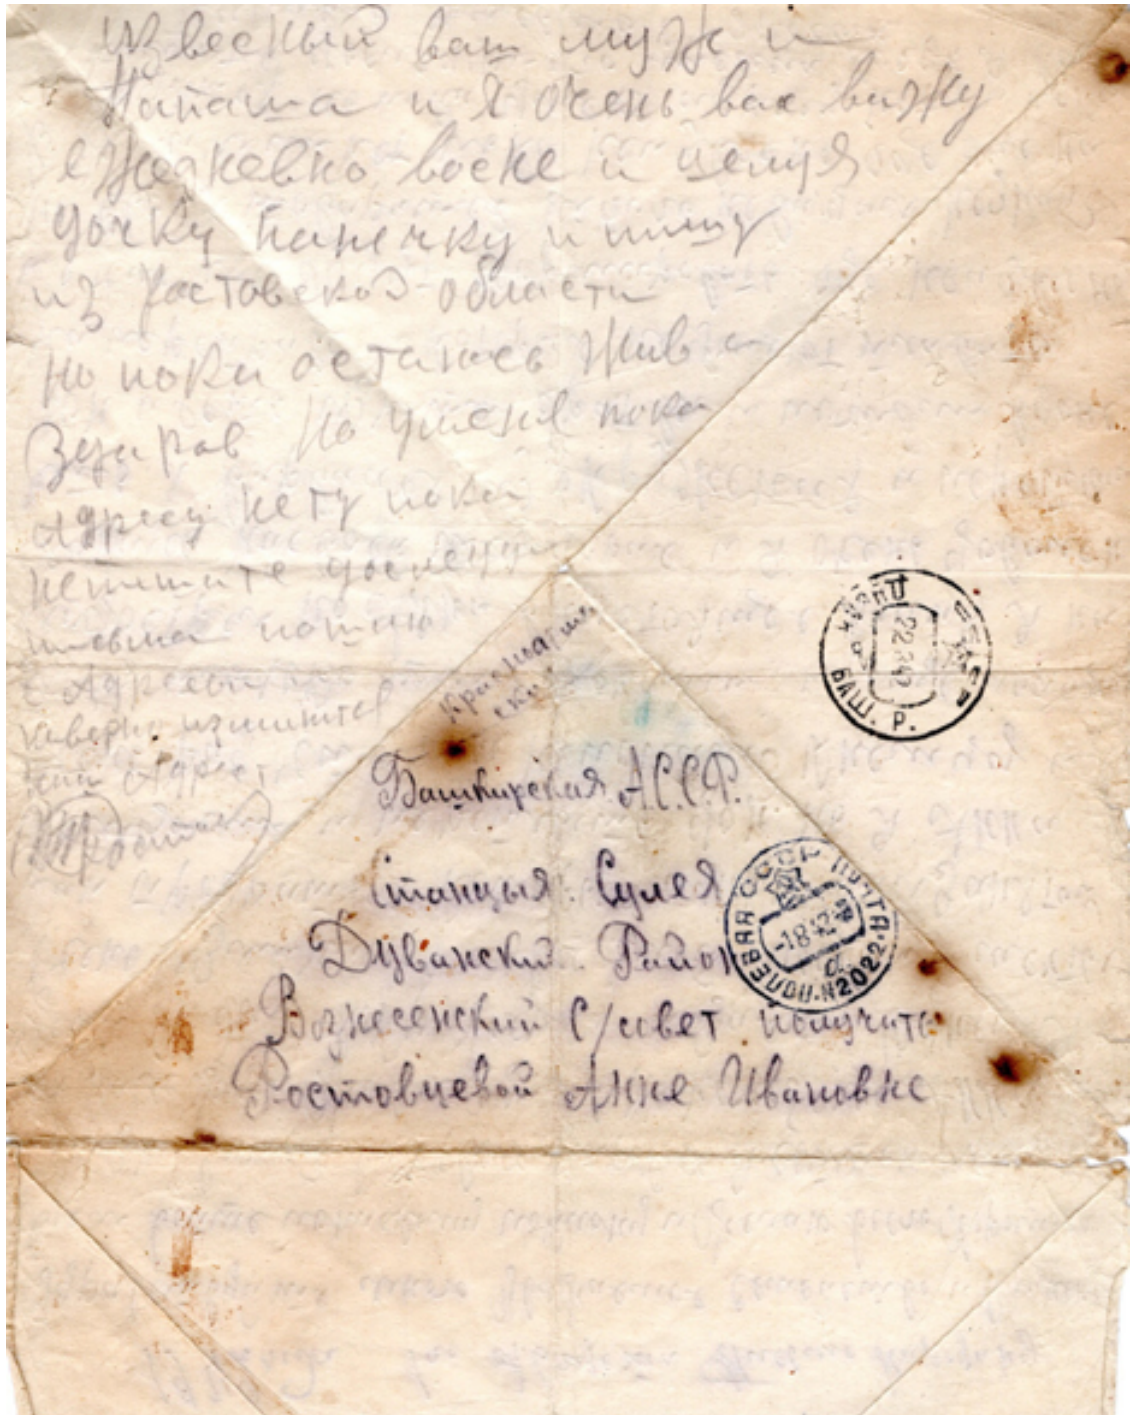 известный ваш муж и
Папаша и я очень вас вижу
ежедневно восне и целуя
дочку Панечку и пишу
из Ростовской области
но пока остаюсь Жив и
Здаров Но уменя пока
Адресу нету пока
непишите
письма
с Адресом
наверно изминится
мой Адрест
Башкирская А.С.С.Р.
Станцыя Сулея
Дуванский Район
Вознесенский С/совет получить
Ростовцевой Анне Ивановне
БАШ. Р.
ПОЛЕВАЯ СССР ПОЧТА
-1 8 42
N2022